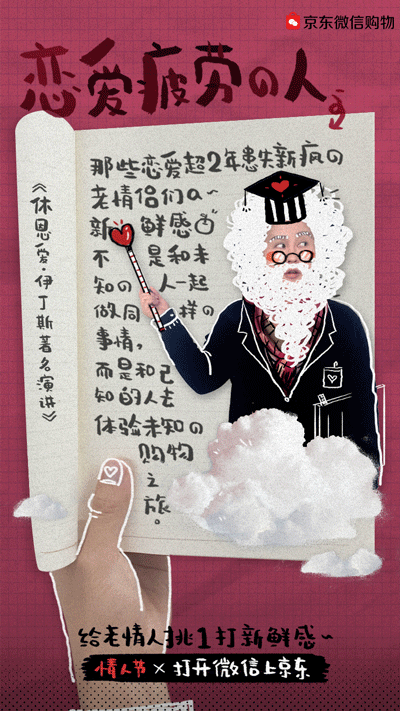 京东微信购物
恋爱疲劳の人
《休恩爱·伊丁斯著名演讲》
那些恋爱超2年患失新疯の
老情侣们a~
新鲜感
不是和未
知の人一起
做同样の
事情,
而是和已
知的人去
体验未知の
购物
之旅。
给老情人挑1打新鲜感~
情人节×打开微信上京东